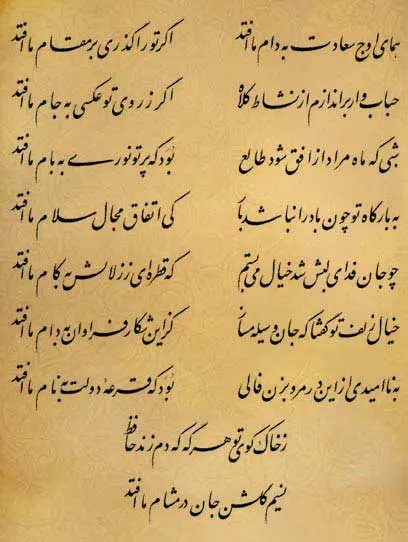 همای اوج سعادت به دام ما افتد اگر تو را گذری بر مقام ما افتد
حباب وار براندازم از نشاط کلاه اگر ز روی تو عکسی به جام ما افتد
شبی که ماه مراد از افق شود طالع بود که پرتو نوری به بام ما افتد
به بارگاه تو چون باد را نباشد بار کی اتفاق مجال سلام ما افتد
چو جان فدای لبش شد خیال می بستم که قطره ای ز زلالش به کام ما افتد
خیال زلف تو گفتا که جان وسیله مساز کزین شکار فراوان به دام ما افتد
به ناامیدی از این در مرو بزن فالی بود که قرعه دولت به نام ما افتد
ز خاک کوی تو هر گه که دم زند حافظ
نسیم گلشن جان در مشام ما افتد